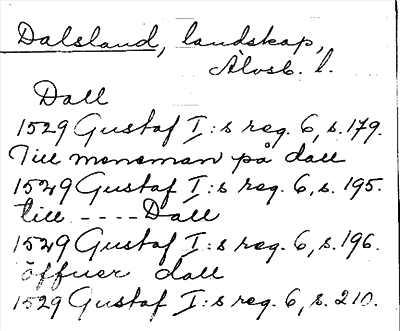 Dalsland, landskap,
Älvsb. l.
Dall
1529 Gustaf I:s reg. 6, s. 179.
Till mensman på dall
1529 Gustaf I:s reg. 6, s. 195.
till ---- Dall
1529 Gustaf I:s reg. 6, s. 196.
öffuer dall
1529 Gustaf I:s reg. 6, s. 210.